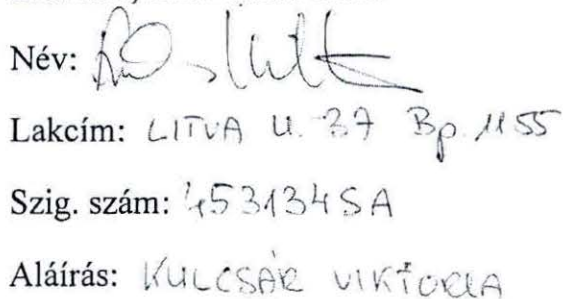 Név:
Lakcím: LITVA U. 37 Bp. 1155
Szig. szám: 453134SA
Aláírás: KULCSÁR VIKTORIA